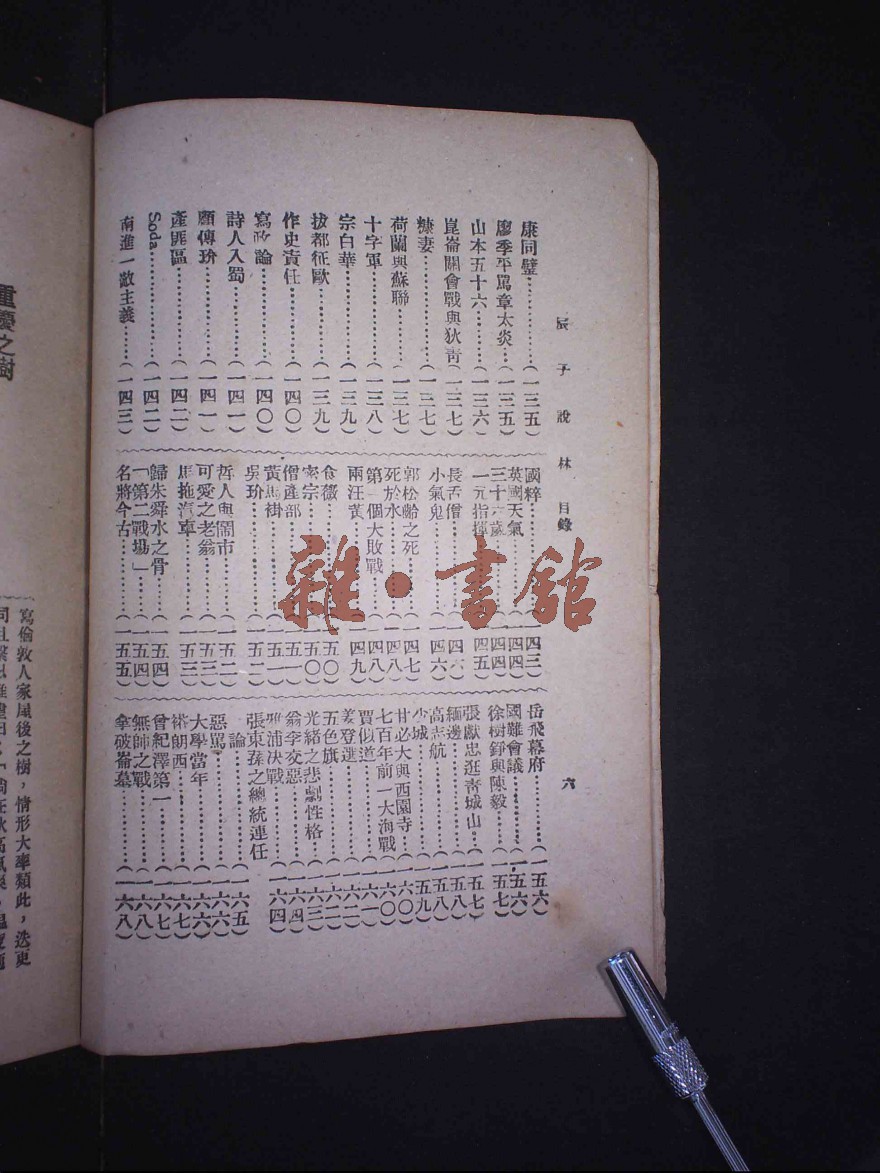 辰子說林 目錄 六
康同璧…………(一三五)
廖季平罵章太炎…(一三五)
山本五十六………(一三六)
崑崙關會戰與狄青(一三七)
糠妻………………(一三七)
荷蘭與蘇聯………(一三七)
十字軍……………(一三八)
宗白華……………(一三九)
拔都征歐…………(一三九)
作史責任…………(一四〇)
寫政論……………(一四〇)
詩人入蜀…………(一四一)
顧傳玠……………(一四一)
產匪區……………(一四二)
Soda………………(一四二)
南進一敵主義……(一四三)
國粹………………(一四三)
英國天氣…………(一四四)
三十六歲…………(一四四)
一元指揮…………(一四五)
長舌僧……………(一四六)
小氣鬼……………(一四六)
郭松齡之死………(一四七)
死於水……………(一四八)
第一個大敗戰……(一四八)
兩汪黃……………(一四九)
食薇………………(一五〇)
密宗………………(一五〇)
僧產部……………(一五一)
黃馬褂……………(一五一)
吳玠………………(一五一)
哲人與鬧市………(一五二)
可愛之老翁………(一五三)
馬拖汽車…………(一五三)
歸朱舜水之骨……(一五四)
「第二戰場」……(一五四)
名將今古…………(一五五)
岳飛幕府…………(一五六)
國難會議…………(一五六)
徐樹錚與陳毅……(一五七)
張獻忠逛青城山…(一五七)
緬邊………………(一五八)
高志航……………(一五八)
少城………………(一五九)
甘必大與西園寺…(一六〇)
七百年前一大海戰(一六〇)
賈似道……………(一六一)
姜登選……………(一六二)
五色旗……………(一六二)
光緒之悲劇性格…(一六三)
翁李交惡…………(一六四)
雅浦決戰…………(一六四)
張東蓀之總統連任
論…………………(一六五)
惡罵………………(一六六)
大學當年…………(一六六)
褚朗西……………(一六七)
曾紀澤第一………(一六七)
無師之戰…………(一六八)
拿破崙墓…………(一六八)
重慶之樹
寫倫敦人家屋後之樹,情形大率類此,迭更
雜・書館